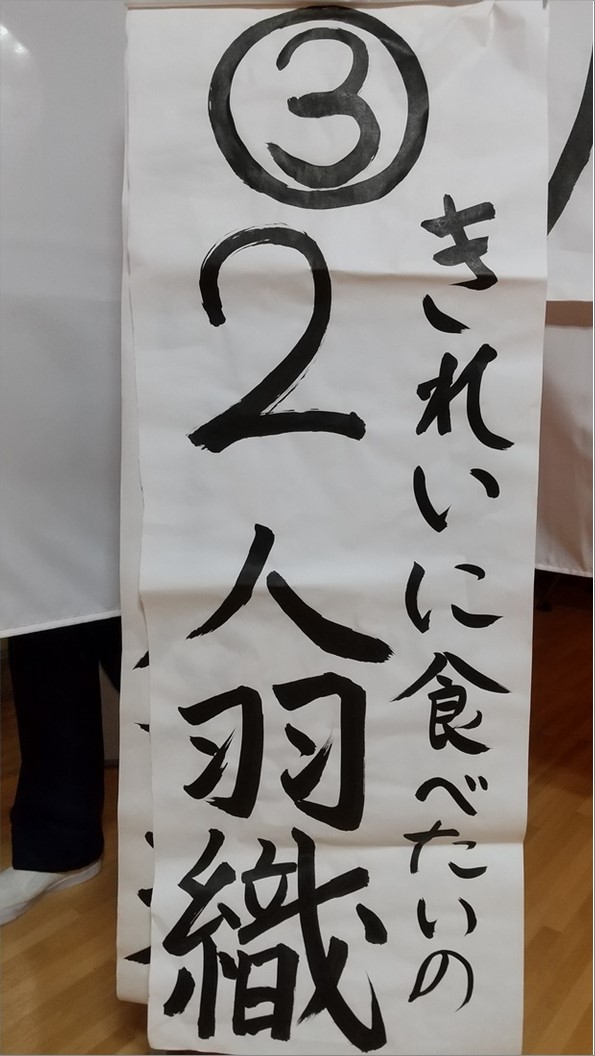 ③
きれいに食べたいの
2人羽織